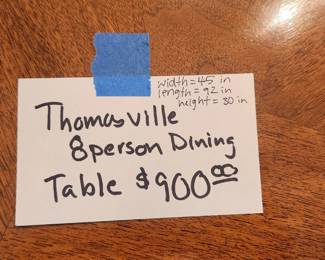 width = 45 in
length = 92 in
height = 30 in
Thomasville
8 person Dining
Table $900.00